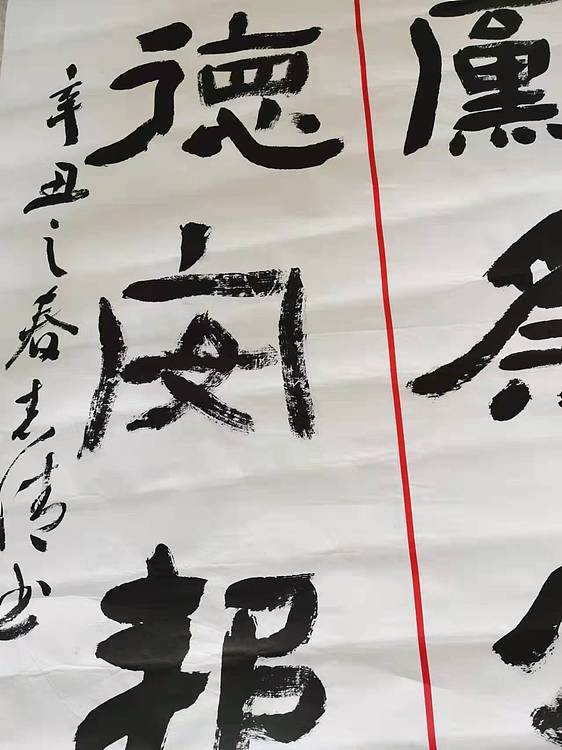 廉
德安邦
辛丑之春志清书